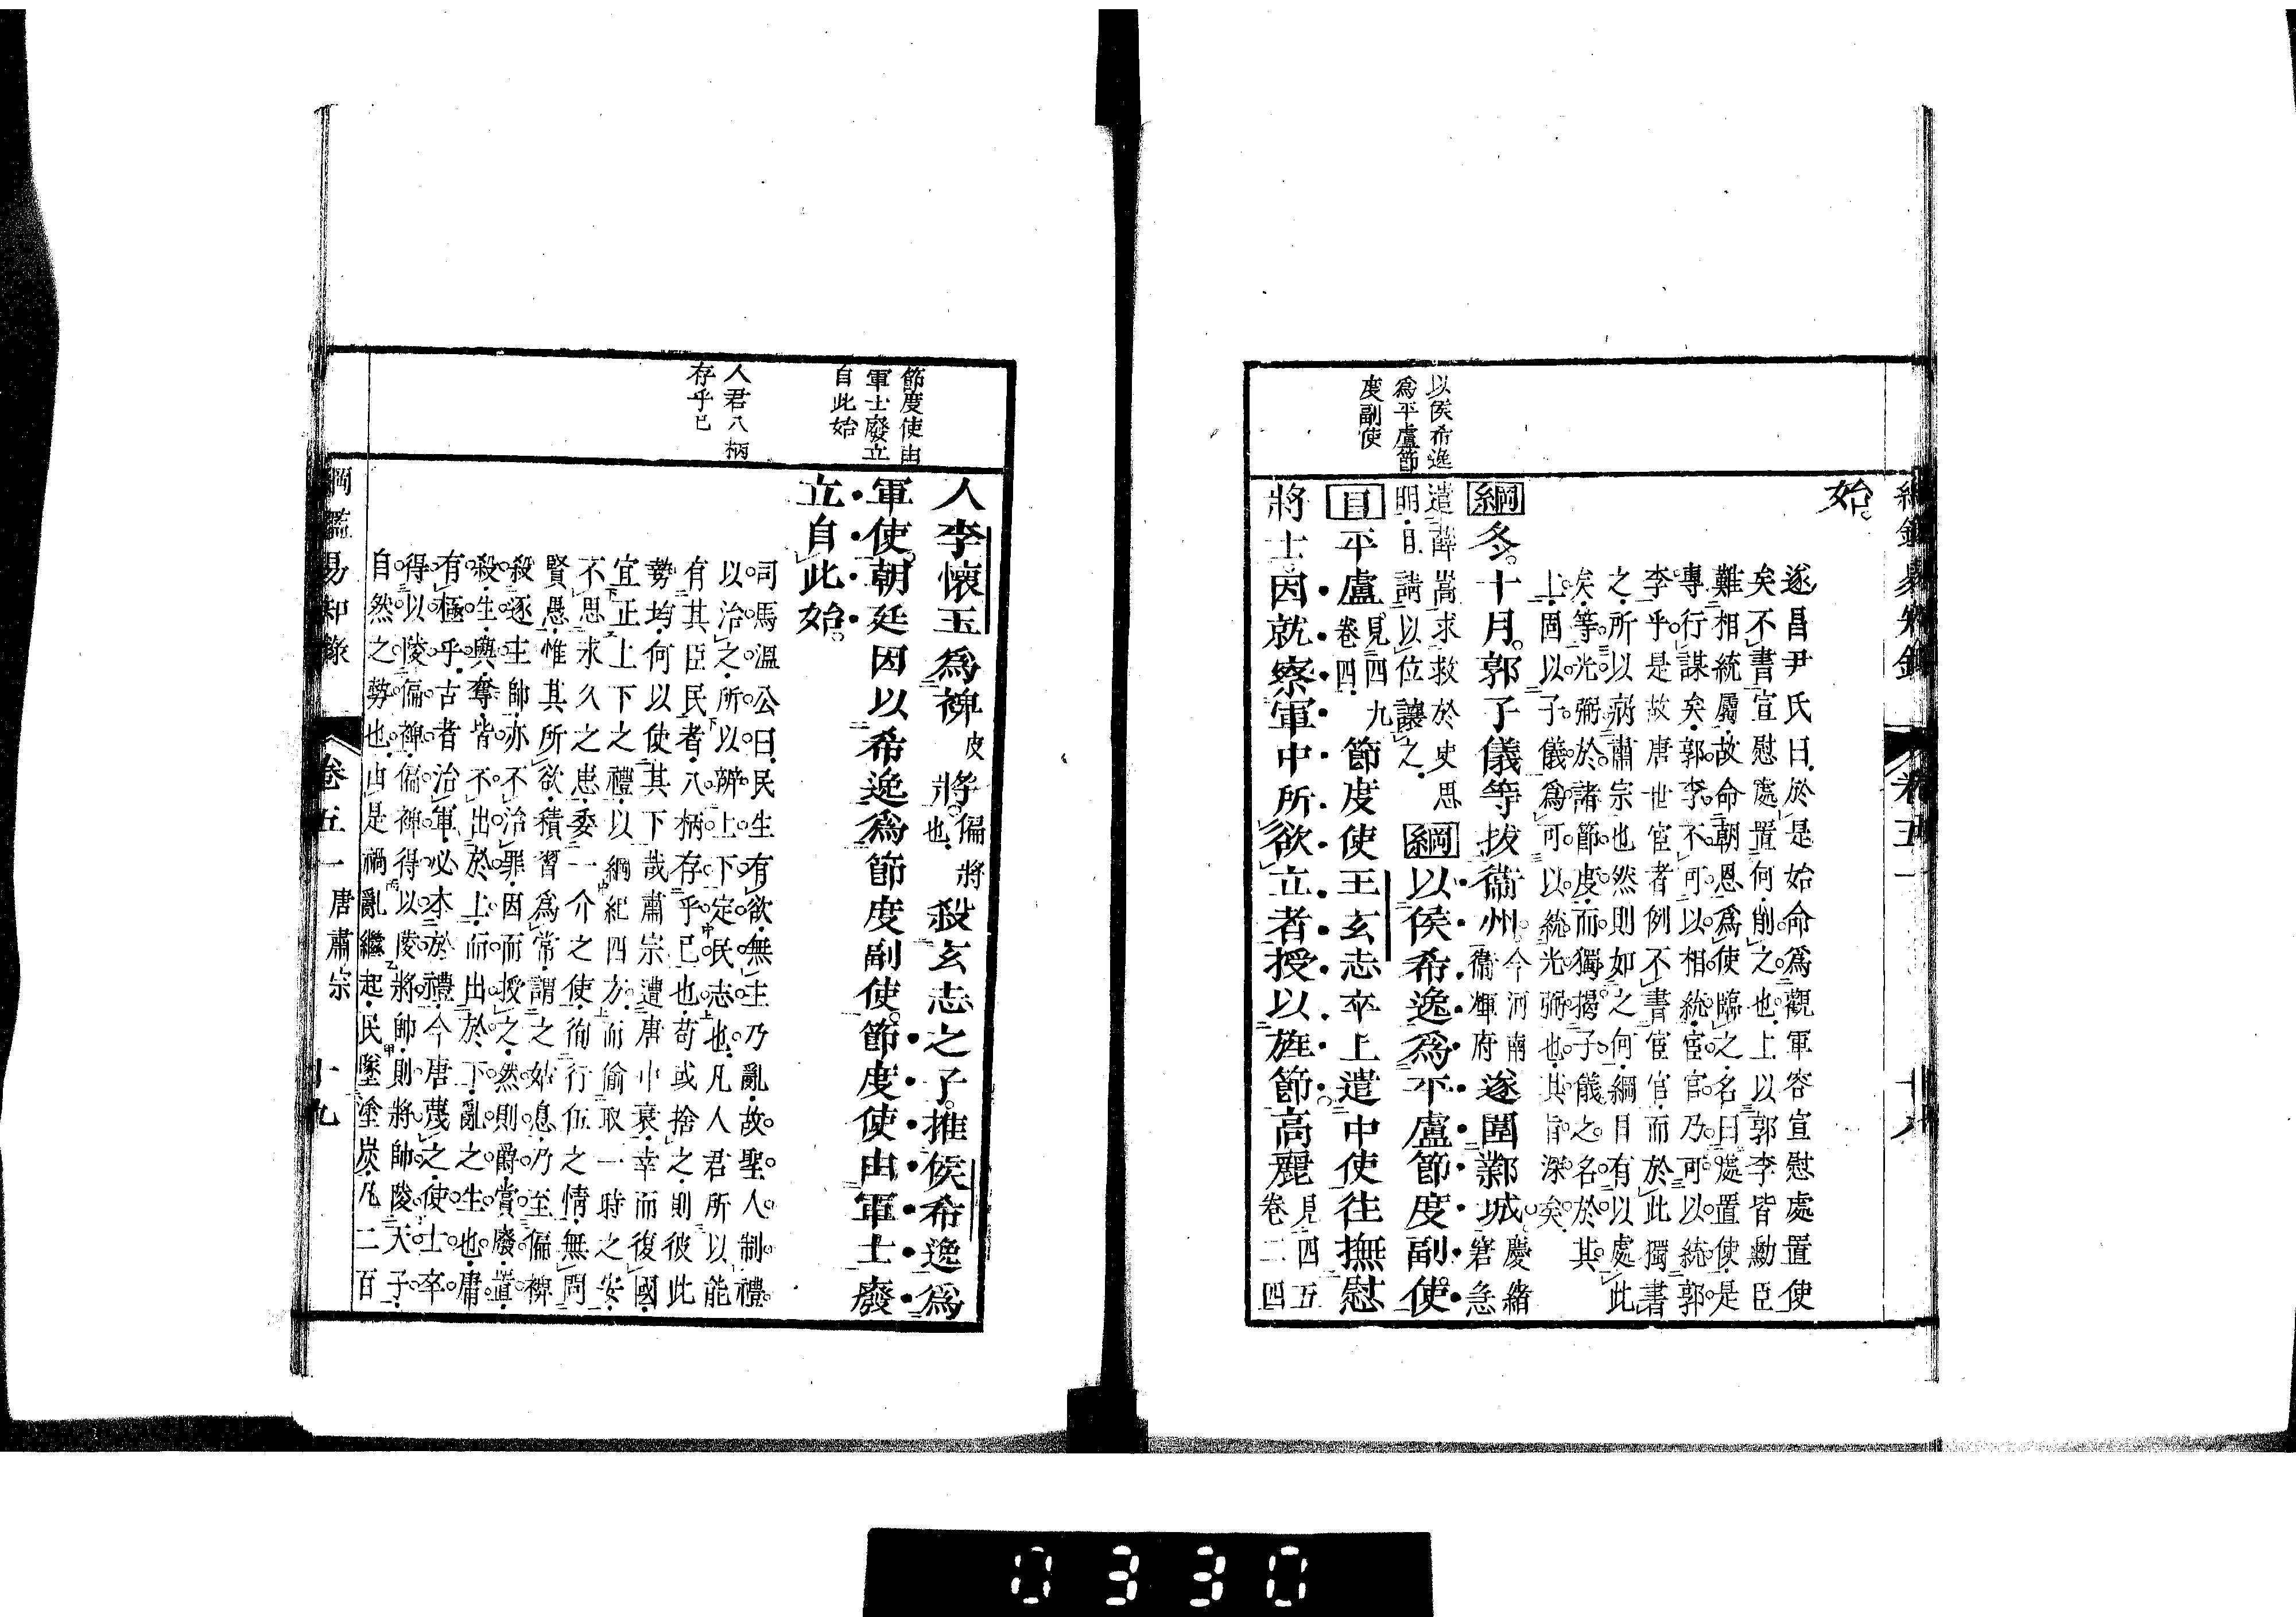 綱鑑易知錄 卷五一 十八
以侯希逸
爲平盧節
度副使
始。
遂昌尹氏曰於是始命爲觀軍容宣慰處置使
矣不書宣慰處置何削之也上以郭李皆勳臣
難相統屬故命朝恩爲使臨之名曰處置使是
專行謀矣郭李不可以相統宦官乃可以統郭
李乎是故唐世宦者例不書宦官而於此獨書
之所以病肅宗也然則如之何綱目有以處此
矣等光弼於諸節度而獨揭子儀之名於其
上固以子儀爲可以統光弼也其旨深矣
綱冬十月郭子儀等拔衞州今河南衞輝府遂圍鄴城慶緒窘急
遣薛嵩求救於史思明且請以位讓之綱以侯希逸爲平盧節度副使
目平盧見四九卷四節度使王玄志卒上遣中使往撫慰
將士因就察軍中所欲立者授以旌節高麗見四五卷二四
節度使由
軍士廢立
自此始
人君八柄
存乎已
人李懷玉爲裨皮將偏將也殺玄志之子推侯希逸爲
軍使朝廷因以希逸爲節度副使節度使由軍士廢
立自此始
司馬溫公曰民生有欲無主乃亂故聖人制禮
以治之所以辨上下定民志也凡人君所以能
有其臣民者八柄存乎已也苟或捨之則彼此
勢均何以使其下哉肅宗遭唐中衰幸而復國
宜正上下之禮以綱紀四方而偷取一時之安
不思求久之患委一介之使徇行伍之情無問
賢愚惟其所欲積習爲常謂之姑息乃至偏裨
殺逐主帥亦不治罪因而授之然則爵賞廢置
殺生與奪皆不出於上而出於下亂之生也庸
有極乎古者治軍必本於禮今唐蔑之使士卒
得以陵偏裨偏裨得以陵將帥則將帥陵天子
自然之勢也由是禍亂繼起民墜塗炭凡二百
綱鑑易知錄 卷五一 唐肅宗 十九
0330